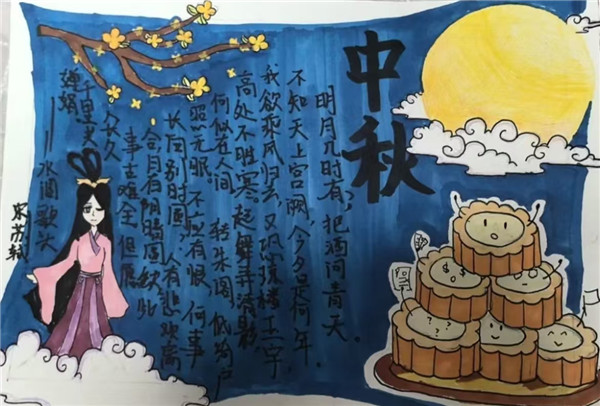 中秋
明月几时有，把酒问青天。
不知天上宫阙，今夕是何年。
我欲乘风归去，又恐琼楼玉宇，
高处不胜寒。起舞弄清影，
何似在人间 转朱阁，低绮户
照无眠。不应有恨，何事
长向别时圆，人有悲欢离
合月有阴晴圆缺，此
事古难全，但愿
人长久
千里共
婵娟
——水调歌头
宋苏轼